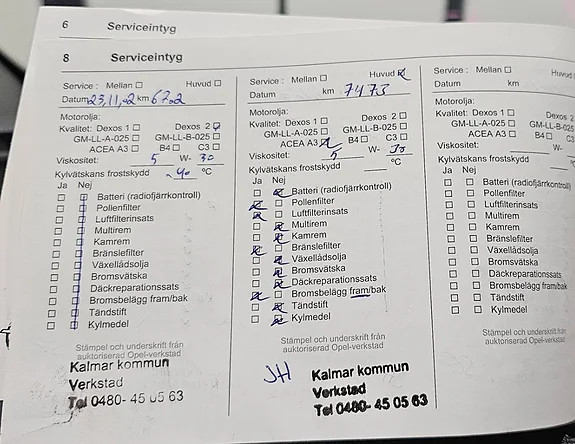 6 Serviceintyg
8 Serviceintyg
Service : Mellan Huvud
Datum 23,11,-2 km 6722
Motorolja:
Kvalitet: Dexos 1 Dexos 2
GM-LL-A-025 GM-LL-B-025
ACEA A3 B4 C3
Viskositet: 5 W- 30
Kylvätskans frostskydd -40 °C
Ja Nej
Batteri (radiofjärrkontroll)
Pollenfilter
Luftfilterinsats
Multirem
Kamrem
Bränslefilter
Växellådsolja
Bromsvätska
Däckreparationssats
Bromsbelägg fram/bak
Tändstift
Kylmedel
Stämpel och underskrift från
auktoriserad Opel-verkstad
Kalmar kommun
Verkstad
Tel 0480- 45 05 63
Service : Mellan Huvud
Datum km 7473
Motorolja:
Kvalitet: Dexos 1 Dexos 2
GM-LL-A-025 GM-LL-B-025
ACEA A3 B4 C3
Viskositet: 5 W- 30
Kylvätskans frostskydd °C
Ja Nej
Batteri (radiofjärrkontroll)
Pollenfilter
Luftfilterinsats
Multirem
Kamrem
Bränslefilter
Växellådsolja
Bromsvätska
Däckreparationssats
Bromsbelägg fram/bak
Tändstift
Kylmedel
Stämpel och underskrift från
auktoriserad Opel-verkstad
JH
Kalmar kommun
Verkstad
Tel 0480- 45 05 63
Service : Mellan Huvud
Datum km
Motorolja:
Kvalitet: Dexos 1
GM-LL-A-025
ACEA A3
Viskositet:
Kylvätskans frostskydd
Ja Nej
Batteri (radiofjärrkontroll
Pollenfilter
Luftfilterinsats
Multirem
Kamrem
Bränslefilter
Växellådsolja
Bromsvätska
Däckreparationssats
Bromsbelägg fram/bak
Tändstift
Kylmedel
Stämpel och underskrift
auktoriserad Opel-verkstad